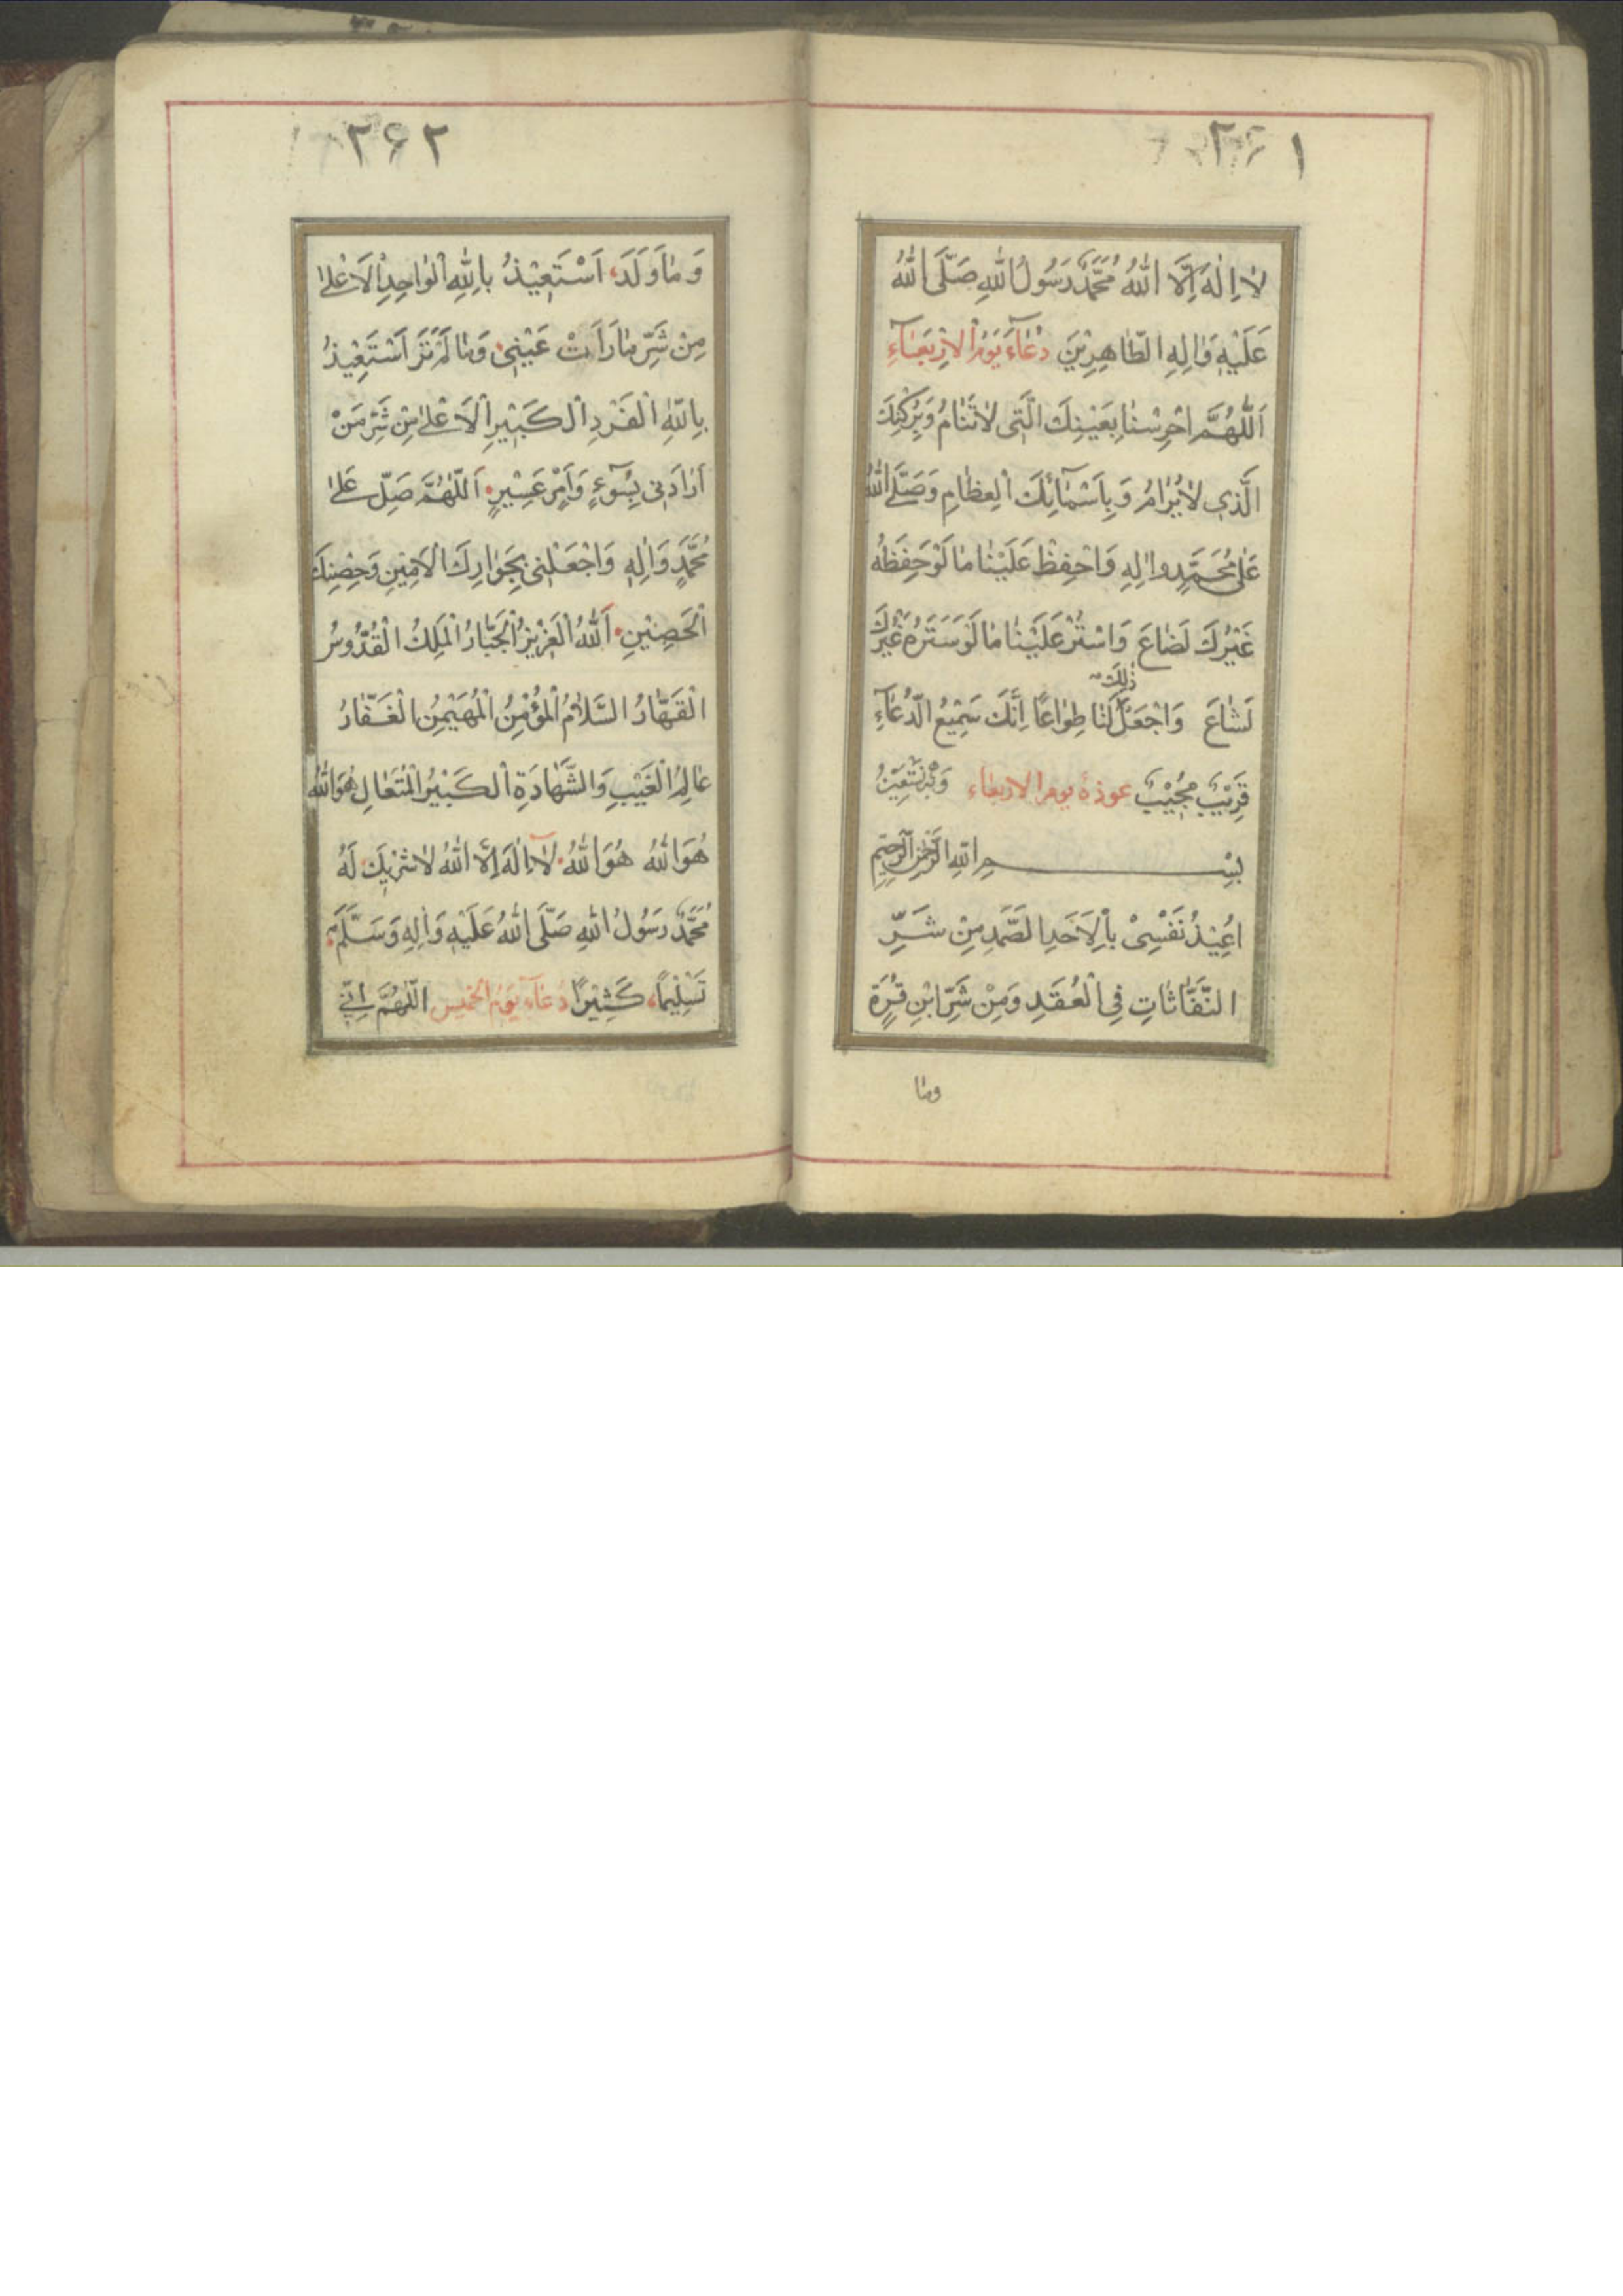 ۲۶۱
لا اِلٰهَ اِلَّا اللهُ مُحَمَّدٌ رَسُولُ اللهِ صَلَّى اللهُ
عَلَيْهِ وَاٰلِهِ الطّاهِرِيْنَ دُعٰآءَ يَوْمُ الاَرْبَعٰآءِ
اَللّٰهُمَّ احْرِسْنٰا بِعَيْنِكَ الَّتِى لاٰتَنٰامُ وَبِرُكْنِكَ
الَّذِي لاٰيُرٰامُ وَبِاَسْمٰائِكَ الْعِظٰامِ وَصَلَّى اللهُ
عَلٰى مُحَمَّدٍ واٰلِهِ وَاحْفِظْ عَلَيْنٰا مٰا لَوْحَفِظَهُ
غَيْرُكَ لَضٰاعَ وَاسْتُرْ عَلَيْنٰا مٰا لَوْسَتَرَهُ غَيْرُكَ
لَشٰاعَ وَاجْعَلْ ذٰلِكَ لَنٰا طِوٰاعًا اِنَّكَ سَمِيْعُ الدُّعٰآءِ
قَرِيْبٌ مُجِيْبٌ عوذۀ يوم الاربعاء وَبِهِ نَسْتَعِيْنُ
بِسْمِ اللهِ الرَّحْمٰنِ الرَّحِيْمِ
اُعِيْذُ نَفْسِىْ بِالْاَحَدِ الصَّمَدِ مِنْ شَرِّ
النَّفّٰاثٰاتِ فِى الْعُقَدِ وَمِنْ شَرِّ ابْنِ قُتْرَةَ
ومٰا
۲۶۲
وَمٰا وَلَدَ، اَسْتَعِيْذُ بِاللهِ الْوٰاحِدِ الْاَعْلىٰ
مِنْ شَرِّ مٰا رَاَتْ عَيْنِىْ وَمٰا لَمْ تَرَ اَسْتَعِيْذُ
بِاللهِ الْفَرْدِ الْكَبِيْرِ الْاَعْلىٰ مِنْ شَرِّ مَنْ
اَرٰادَنِى بِسُوٓءٍ وَاَمْرٍ عَسِيْرٍ اَللّٰهُمَّ صَلِّ عَلىٰ
مُحَمَّدٍ وَاٰلِهِ وَاجْعَلْنِى بِجَوٰارِكَ الْاَمِيْنِ وَحِصْنِكَ
الْحَصِيْنِ اَللهُ الْعَزِيْزُ الْجَبّارُ الْمَلِكُ الْقُدُّوسُ
الْقَهّٰارُ السَّلاٰمُ الْمُؤْمِنُ الْمُهَيْمِنُ الْغَفّٰارُ
عٰالِمُ الْغَيْبِ وَالشَّهٰادَةِ الْكَبِيْرُ الْمُتَعٰالِ هُوَ اللهُ
هُوَ اللهُ هُوَ اللهُ لاٰ اِلٰهَ اِلَّا اللهُ لاٰ شَرِيْكَ لَهُ
مُحَمَّدٌ رَسُولُ اللهِ صَلَّى اللهُ عَلَيْهِ وَاٰلِهِ وَسَلَّمَ
تَسْلِيْمًا، كَثِيْرًا دُعٰآءَ يَوْمُ الْخَميسِ اَللّٰهُمَّ اِنِّي